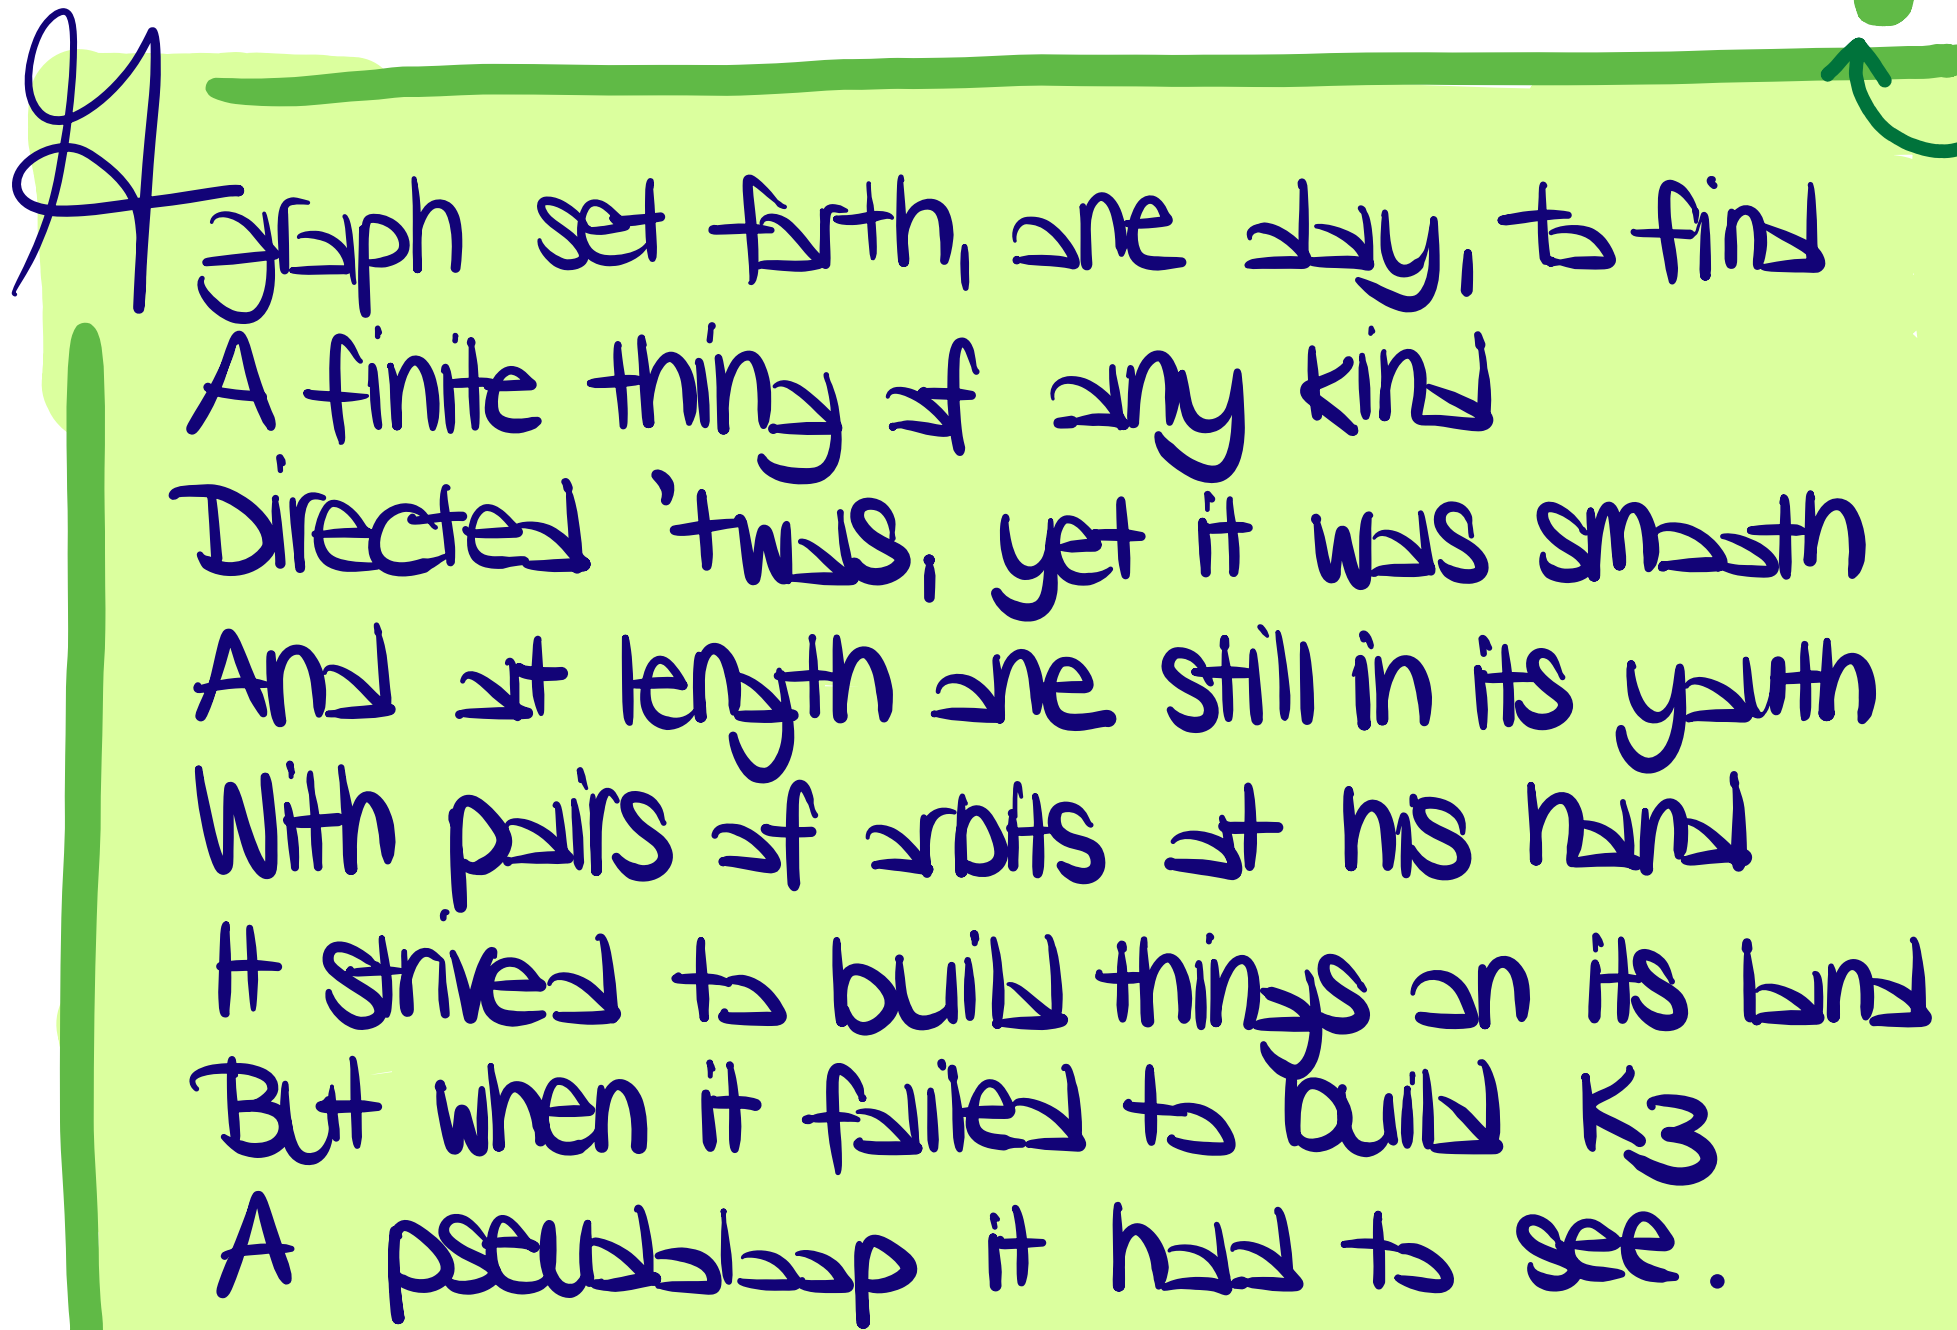 A graph set forth, one day, to find
A finite thing of any kind
Directed 'twas, yet it was smooth
And at length one still in its youth
With pairs of orbits at his hand
It strived to build things on its land
But when it failed to build K3
A pseudoloop it had to see.